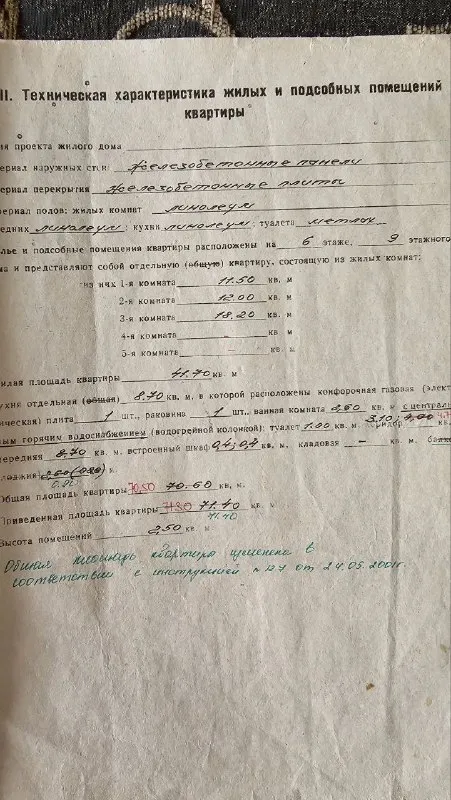 II. Техническая характеристика жилых и подсобных помещений
квартиры
ия проекта жилого дома
ериал наружных стен Железобетонные панели
ериал перекрытия Железобетонные плиты
ериал полов: жилых комнат линолеум
едних линолеум; кухни линолеум; туалета метлах
лье и подсобные помещения квартиры расположены на 6 этаже, 9 этажного
ма и представляют собой отдельную (общую) квартиру, состоящую из жилых комнат:
из них 1-я комната 11.50 кв. м
2-я комната 12.00 кв. м
3-я комната 18,20 кв. м
4-я комната - кв. м
5-я комната - кв. м
илая площадь квартиры 41.70 кв. м
ухня отдельная (общая) 8,70 кв. м, в которой расположены конфорочная газовая (элект
ическая) плита 1 шт., раковина 1 шт., ванная комната кв. м с централь
ным горячим водоснабжением (водогрейной колонкой); туалет 1.00 кв. м коридор 3.10; кв.
ередняя 8,70 кв. м, встроенный шкаф 0,4; 0,7 кв. м. кладовая - кв. м.
лоджия) м.
0.90
Общая площадь квартиры 70.50 70.60 кв. м.
Приведенная площадь квартиры 71.50 71.40 кв. м
71.40
Высота помещений 2,50 кв. м
Общая площадь квартиры изменена в
соответствии с инструкцией №127 от 24.05.2001г.